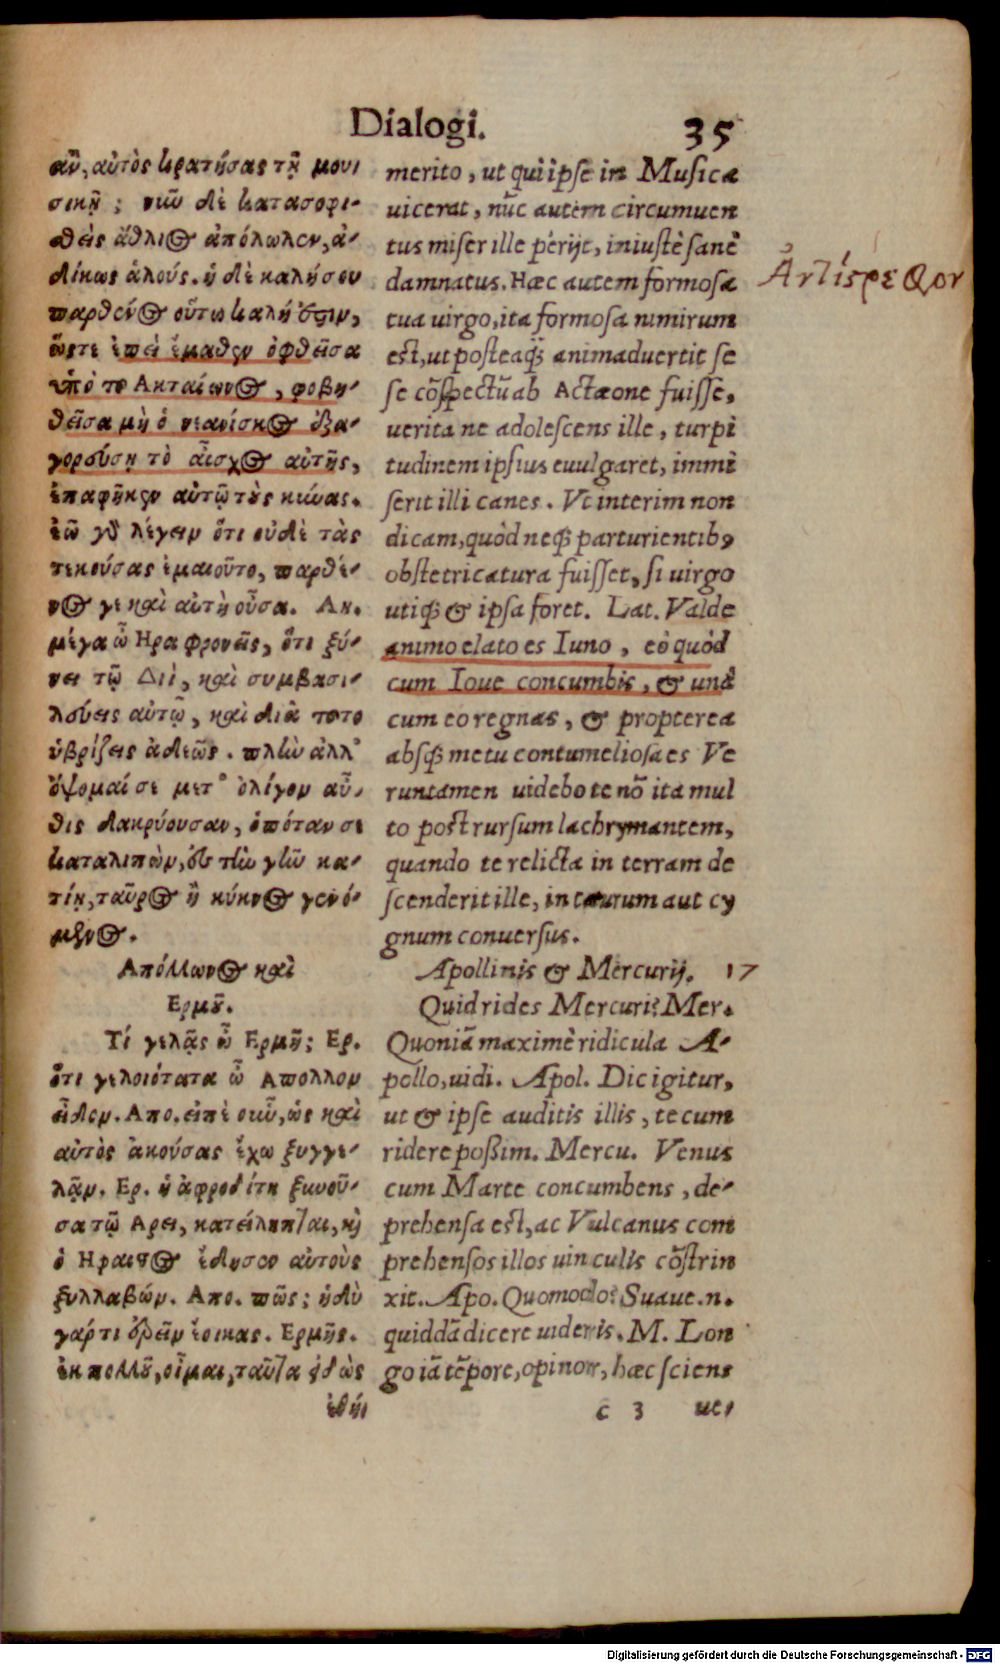 Dialogi. 35
αὖ, αὐτὸς κρατήσας τῇ μου-
σικῇ; νῦν δὲ κατασοφι-
σθεὶς ἄθλιος ἀπόλωλεν, ἀ-
δίκως ἁλούς. ἡ δὲ καλή σου
παρθένος οὕτω καλή ἐστιν,
ὥστε ἐπεὶ ἔμαθεν ὀφθεῖσα
ὑπὸ τοῦ Ακταίωνος, φοβη-
θεῖσα μὴ ὁ νεανίσκος ἐξα-
γορεύσῃ τὸ αἶσχος αὐτῆς,
ἐπαφῆκεν αὐτῷ τοὺς κύνας.
ἐῶ γὰρ λέγειν ὅτι οὐδὲ τὰς
τεκούσας ἐμαιοῦτο, παρθέ-
νος γε καὶ αὐτὴ οὖσα. Λη.
μέγα ὦ Ηρα φρονεῖς, ὅτι ξύ-
νει τῷ Διῒ, καὶ συμβασι-
λεύεις αὐτῷ, καὶ διὰ τοῦτο
ὑβρίζεις ἀδεῶς. πλὴν ἀλλ'
ὄψομαί σε μετ' ὀλίγον αὖ-
θις δακρύουσαν, ὁπόταν σε
καταλιπὼν, ἐς τὴν γῆν κα-
τίῃ, ταῦρος ἢ κύκνος γενό-
μενος.
Απόλλωνος καὶ
Ερμοῦ.
Τί γελᾷς ὦ Ερμῆ; Ερ.
ὅτι γελοιότατα ὦ Απολλον
εἶδον. Απο. εἰπὲ οὖν, ὡς καὶ
αὐτὸς ἀκούσας ἔχω ξυγγε-
λᾷν. Ερ. ἡ ἀφροδίτη ξυνοῦ-
σα τῷ Αρει, κατείληπται, καὶ
ὁ Ηφαιστος ἔδησεν αὐτοὺς
ξυλλαβών. Απο. πῶς; ἡδὺ
γάρ τι ἐρεῖν ἔοικας. Ερμῆς.
ἐκ πολλοῦ, οἶμαι, ταῦτα εἰδὼς
ἐθή-
merito, ut qui ipse in Musica
uicerat, nūc autem circumuen
tus miser ille périjt, iniustè sanè
damnatus. Hæc autem formosa
tua uirgo, ita formosa nimirum
est, ut posteaq̃ animaduertit se
se cōspectū ab Actæone fuisse,
uerita ne adolescens ille, turpi
tudinem ipsius euulgaret, immi
serit illi canes. Vt interim non
dicam, quòd neq; parturientib9
obstetricatura fuisset, si uirgo
utiq; & ipsa foret. Lat. Valde
animo elato es Iuno, eò quòd
cum Ioue concumbis, & unà
cum eo regnas, & propterea
absq; metu contumeliosa es Ve
runtamen uidebo te nō ita mul
to post rursum lachrymantem,
quando te relicta in terram de
scenderit ille, in taurum aut cy
gnum conuersus.
Apollinis & Mercurij. 17
Quid rides Mercuri? Mer.
Quoniā maximè ridicula A-
pollo, uidi. Apol. Dic igitur,
ut & ipse auditis illis, tecum
ridere poßim. Mercu. Venus
cum Marte concumbens, de-
prehensa est, ac Vulcanus com
prehensos illos uinculis cōstrin
xit. Apo. Quomodo? Suaue.n.
quiddā dicere uideris. M. Lon
go iā tēpore, opinor, hæc sciens
c 3 uet
Ἀντίστρεφον
Digitalisierung gefördert durch die Deutsche Forschungsgemeinschaft - DFG